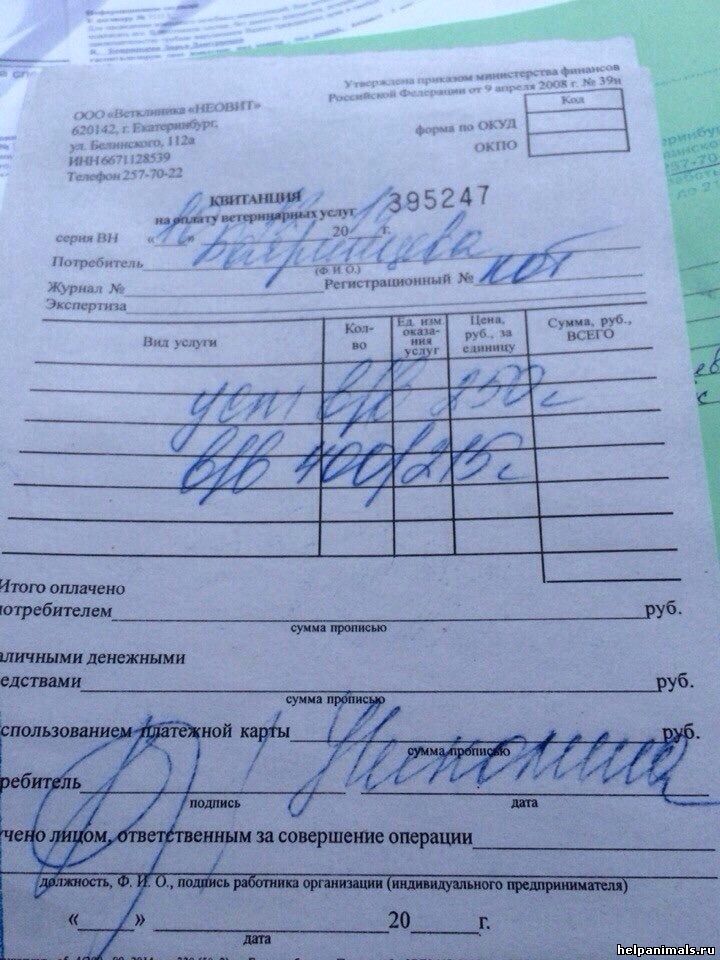 Утверждена приказом министерства финансов
Российской Федерации от 9 апреля 2008 г. № 39н
ООО «Ветклиника «НЕОВИТ»
620142, г. Екатеринбург,
ул. Белинского, 112а
ИНН 6671128539
Телефон 257-70-22
Код
форма по ОКУД
ОКПО
КВИТАНЦИЯ
на оплату ветеринарных услуг
395247
серия ВН « » 20 г.
Потребитель
(Ф. И. О.)
Журнал № Регистрационный № кот
Экспертиза
Вид услуги Кол-во Ед. изм. оказания услуг Цена, руб., за единицу Сумма, руб., ВСЕГО
усп в/в 250
в/в 400/215
Итого оплачено
потребителем руб.
сумма прописью
аличными денежными
едствами руб.
сумма прописью
спользованием платежной карты руб.
сумма прописью
ребитель
подпись дата
учено лицом, ответственным за совершение операции
должность, Ф. И. О., подпись работника организации (индивидуального предпринимателя)
« » 20 г.
дата
helpanimals.ru